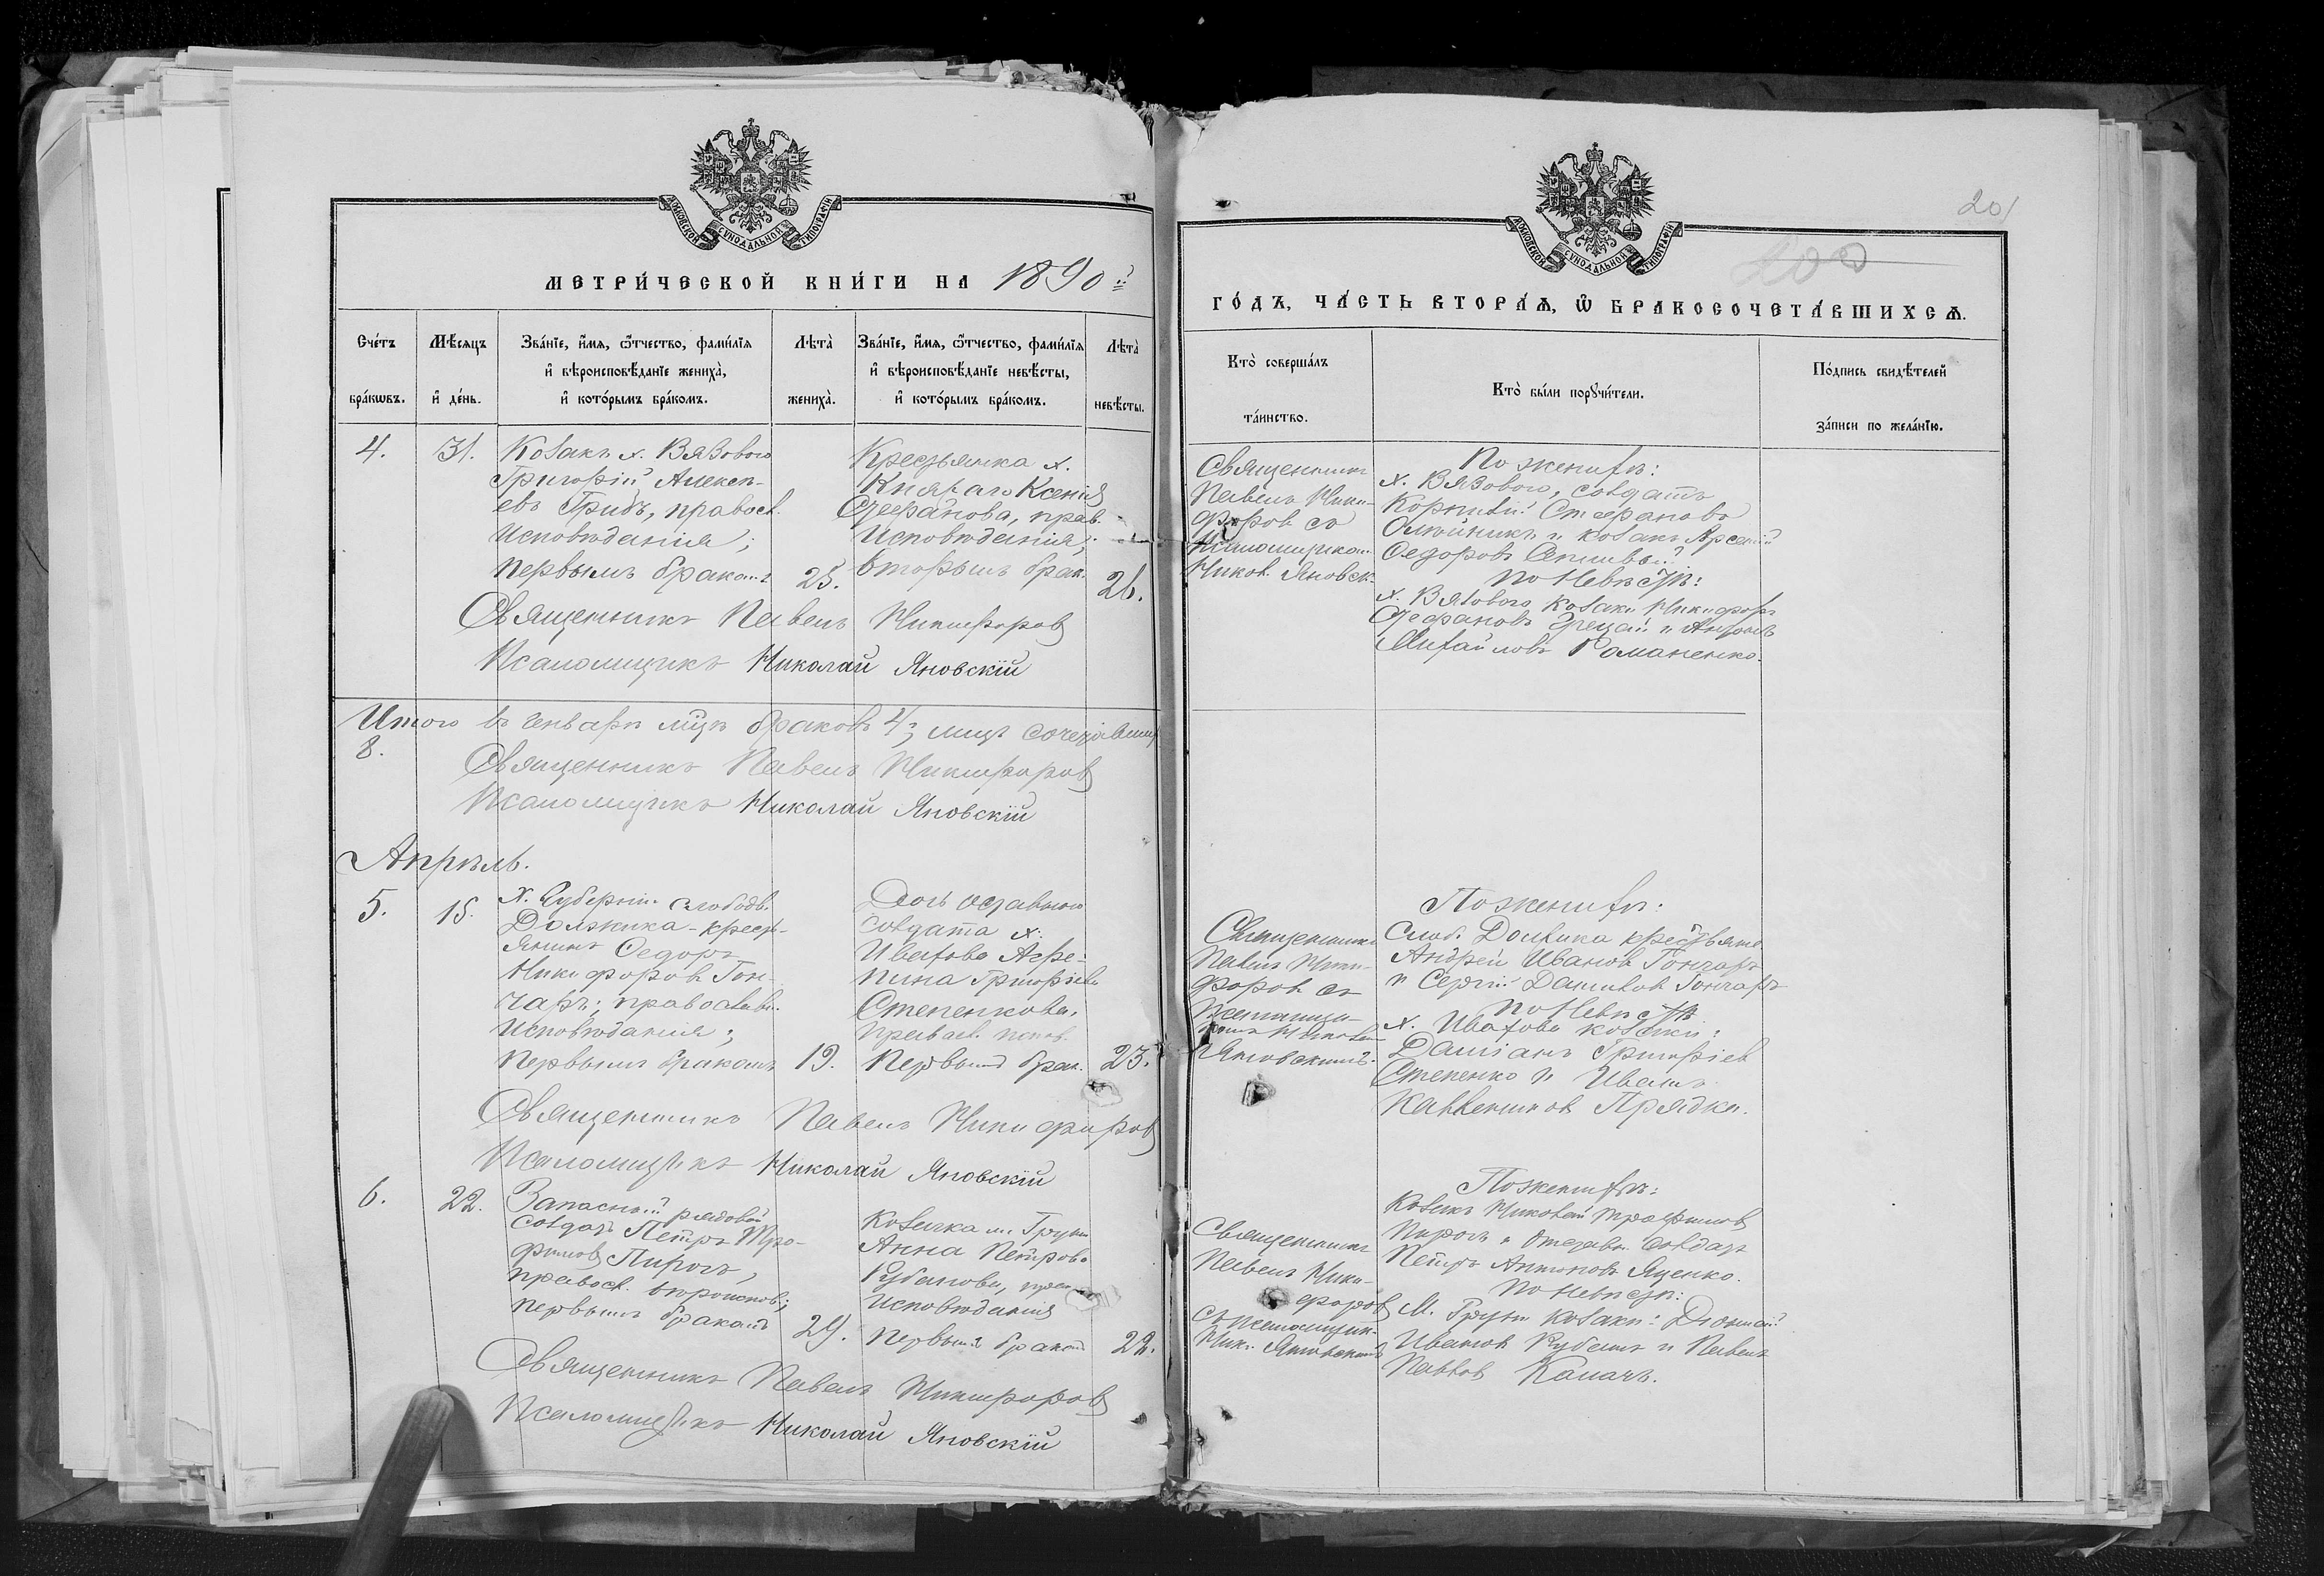 МОСКОВСКОЙ СѴНОДАЛЬНОЙ ТИПОГРАФІИ
МЕТРИ́ЧЕСКОЙ КНИ́ГИ НА 1890й
Сче́тъ бра́кѡвъ.
Мѣ́сяцъ и҆ де́нь.
Зва́нїе, и҆́мя, ѻ҆́тчество, фами́лїя
и҆ вѣроисповѣ́данїе жениха̀,
и҆ кото́рымъ бра́комъ.
Лѣта̀ жениха̀.
Зва́нїе, и҆́мя, ѻ҆́тчество, фами́лїя
и҆ вѣроисповѣ́данїе невѣ́сты,
и҆ кото́рымъ бра́комъ.
Лѣта̀ невѣ́сты.
4.
31.
Козакъ х. Вязового
Григорій Алексѣ-
евъ Гридъ, правосл.
исповѣданія;
первымъ бракомъ
25.
Крестьянка х.
Ксенія
Стефанова, прав.
исповѣданія;
вторымъ брак.
26.
Священникъ Павелъ Никифоровъ
Псаломщикъ Николай Яновскій
Итого въ генварѣ мцѣ браковъ 4; лицъ сочетавших
8.
Священникъ Павелъ Никифоровъ
Псаломщикъ Николай Яновскій
Апрѣль.
5.
15.
слобод.
Должика-кресть-
янинъ Ѳедоръ
Никифоровъ Гон-
чаръ; православн.
исповѣданія;
первымъ бракомъ
19.
Дочь отставного
солдата х.
Ивахова Агре-
пина Григоріева
Степенкова,
правосл. испов.
первымъ брак.
23.
Священникъ Павелъ Никифоровъ
Псаломщикъ Николай Яновскій
6.
22.
Запасный рядовой
солдатъ Петръ Тро-
фимовъ Пирогъ,
правосл. вѣроисповѣ;
первымъ бракомъ
29.
Козачка м. Груни
Анна Петрова
Рубанова, прав.
исповѣданія
первымъ бракомъ
22.
Священникъ Павелъ Никифоровъ
Псаломщикъ Николай Яновскій
201
200
МОСКОВСКОЙ СѴНОДАЛЬНОЙ ТИПОГРАФІИ
ГО́ДЪ, ЧА́СТЬ ВТОРА́Я, Ѡ҆ БРАКОСОЧЕТА́ВШИХСЯ.
Кто̀ соверша́лъ
та́инство.
Кто̀ бы́ли порꙋчи́тели.
По́дпись свидѣ́телей
за́писи по жела́нїю.
Священникъ
Павелъ Ники-
форовъ съ
псаломщикомъ
Никол. Яновск.
По женихѣ:
х. Вязового, солдатъ
Корнилій Стефановъ
Олѣйникъ и козакъ Арсеній
Ѳедоровъ
По невѣстѣ:
х. Вязового козаки Никифоръ
Стефановъ Грецай и Антонъ
Михайловъ Романенко.
Священникъ
Павелъ Ники-
форовъ съ
псаломщи-
комъ Николаемъ
Яновскимъ.
По женихѣ:
Слоб. Должика крестьяне
Андрей Ивановъ Гончаръ
и Сергій Даниловъ Гончаръ
По невѣстѣ
х. Ивахова козаки:
Даміанъ Григоріевъ
Степенко и Иванъ
Прядка.
Священникъ
Павелъ Ники-
форовъ
съ псаломщик.
Ник. Яновскимъ
По женихѣ:
Козакъ Николай Трофимовъ
Пирогъ и отставн. солдатъ
Петръ Антоновъ Яценко.
По невѣстѣ:
М. Груни козаки: Діонисій
Ивановъ Рубанъ и Павелъ
Павловъ Калачъ.